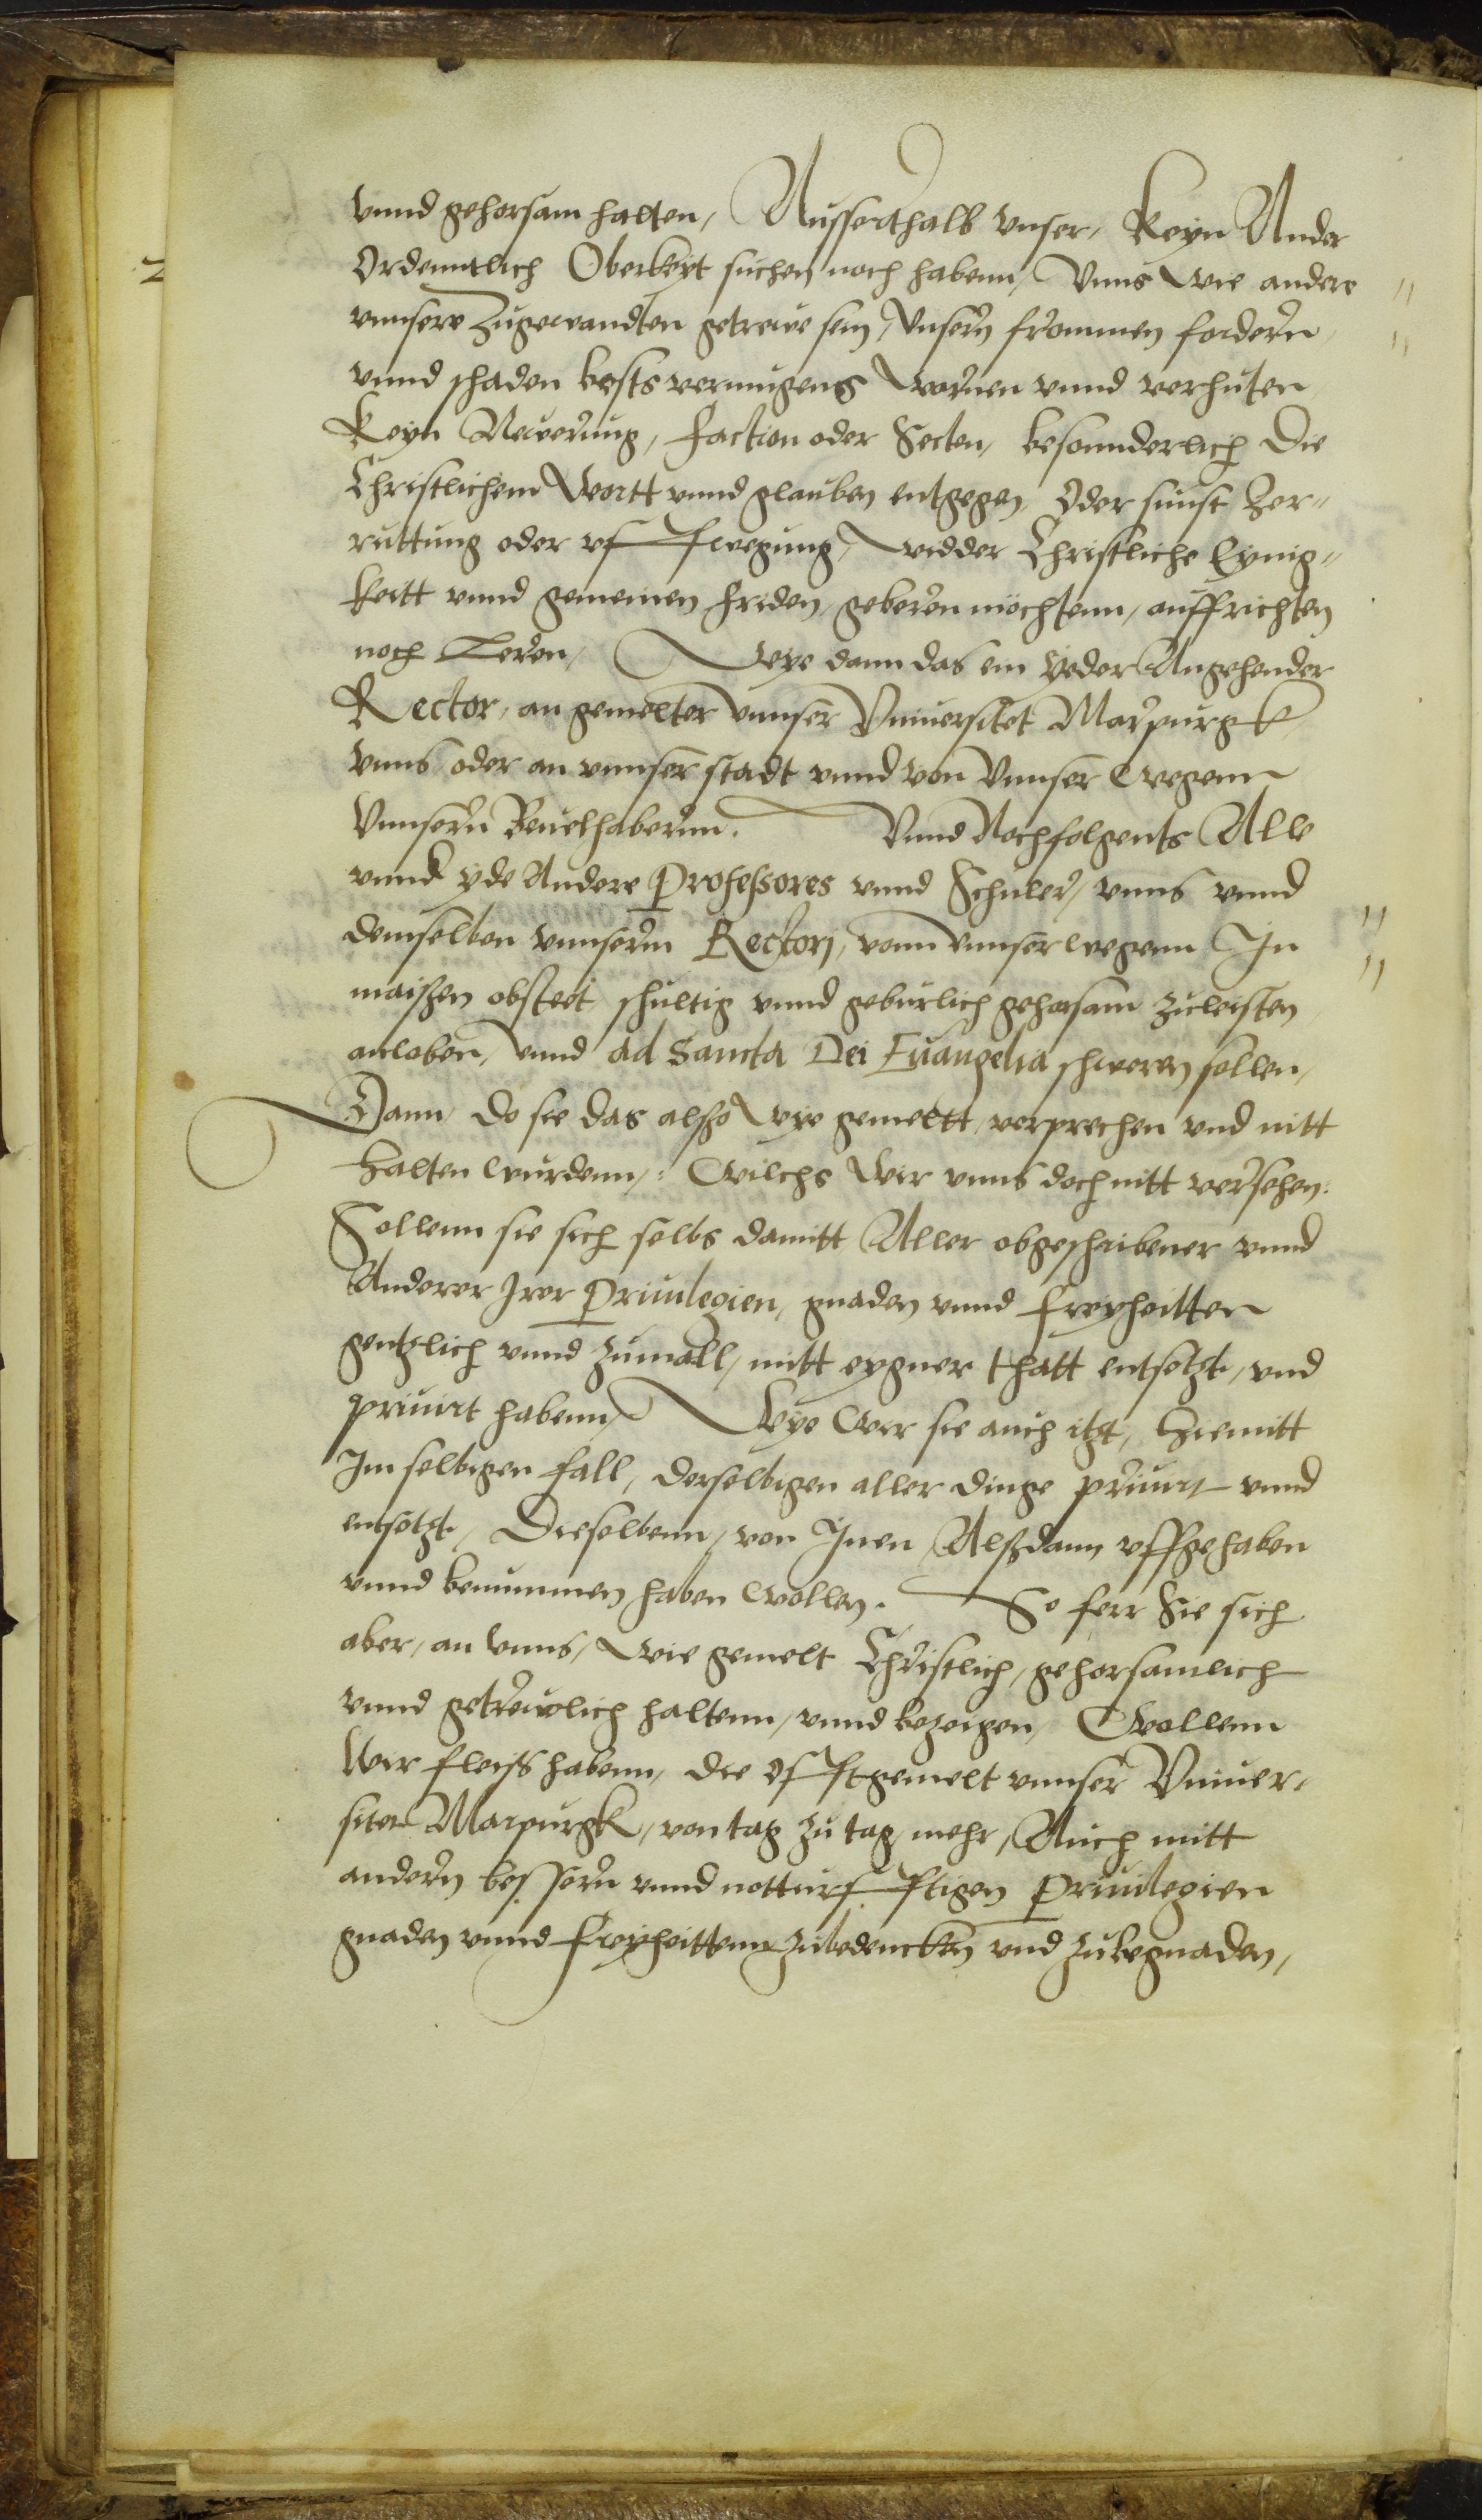 vnnd gehorsam halten, Ausserthalb vnser, Keyn Ander
Ordenntlich Oberkeyt suchen noch habenn, Vnns wie andere
vnnsere Zugewandten getrewe sein, Vnsern frommen fordern
vnnd schaden bests vermugens wornen vnnd verhuten
Keyn Newerung, faction oder Secten, besonnderlich Die
Christlichem Wortt vnnd glauben entgegen, Oder sunst Zer„
ruttung oder vffwegung, widder Christliche Eynig„
keitt vnnd gemeinen friden, geberen möchtenn, auffrichten
noch Leren, Wye dann das ein yeder Angehender
Rector, an gemelter Vnnser Vniuersitet Marpurgk
vnns oder an vnnser stadt vnnd von Vnnser wegenn
Vnnsern Beuelhabernn. Vnnd Nochfolgents Alle
vnnd yde Andere Professores vnnd Schuler, vnns vnnd
demselben vnnserm Rectorj, vonn Vnnser wegenn In
maißen obsteet, schultig vnnd geburlich gehorsam zuleisten
anloben, Vnnd ad Sancta Dei Euangelia schweren sollen,
Dann, Do sie das alßo wye gemeltt, versprechen vnd nitt
halten wurdenn, : Wilchs wir vnns doch nitt versehen:
Sollenn sie sich selbs damitt Aller obgeschribener vnnd
Anderer Irer Priuilegien, gnaden vnnd freyheitten
gentzlich vnnd zumall, mitt eygner thatt entsetzt, vnd
priuirt habenn, Wye Wir sie auch itzt, hiemitt
Im selbigen fall, derselbigen aller dinge priuirt vnnd
entsetzt, Dieselbenn, von Inen Alßdann vffgehaben
vnnd benummen haben wollen. So ferr Sie sich
aber, an vnns, Wie gemelt Christlich, gehorsamlich
vnnd getrewlich haltenn, vnnd bezeigen, Wollenn
Wir fleiß habenn, die offtgemelt vnnser Vniuer„
sitet Marpurgk, von tag zu tag mehr, Auch mitt
andern bessern vnnd notturfftigen Priuilegien
gnaden vnnd freyheittenn zubedencken vnd zubegnaden,